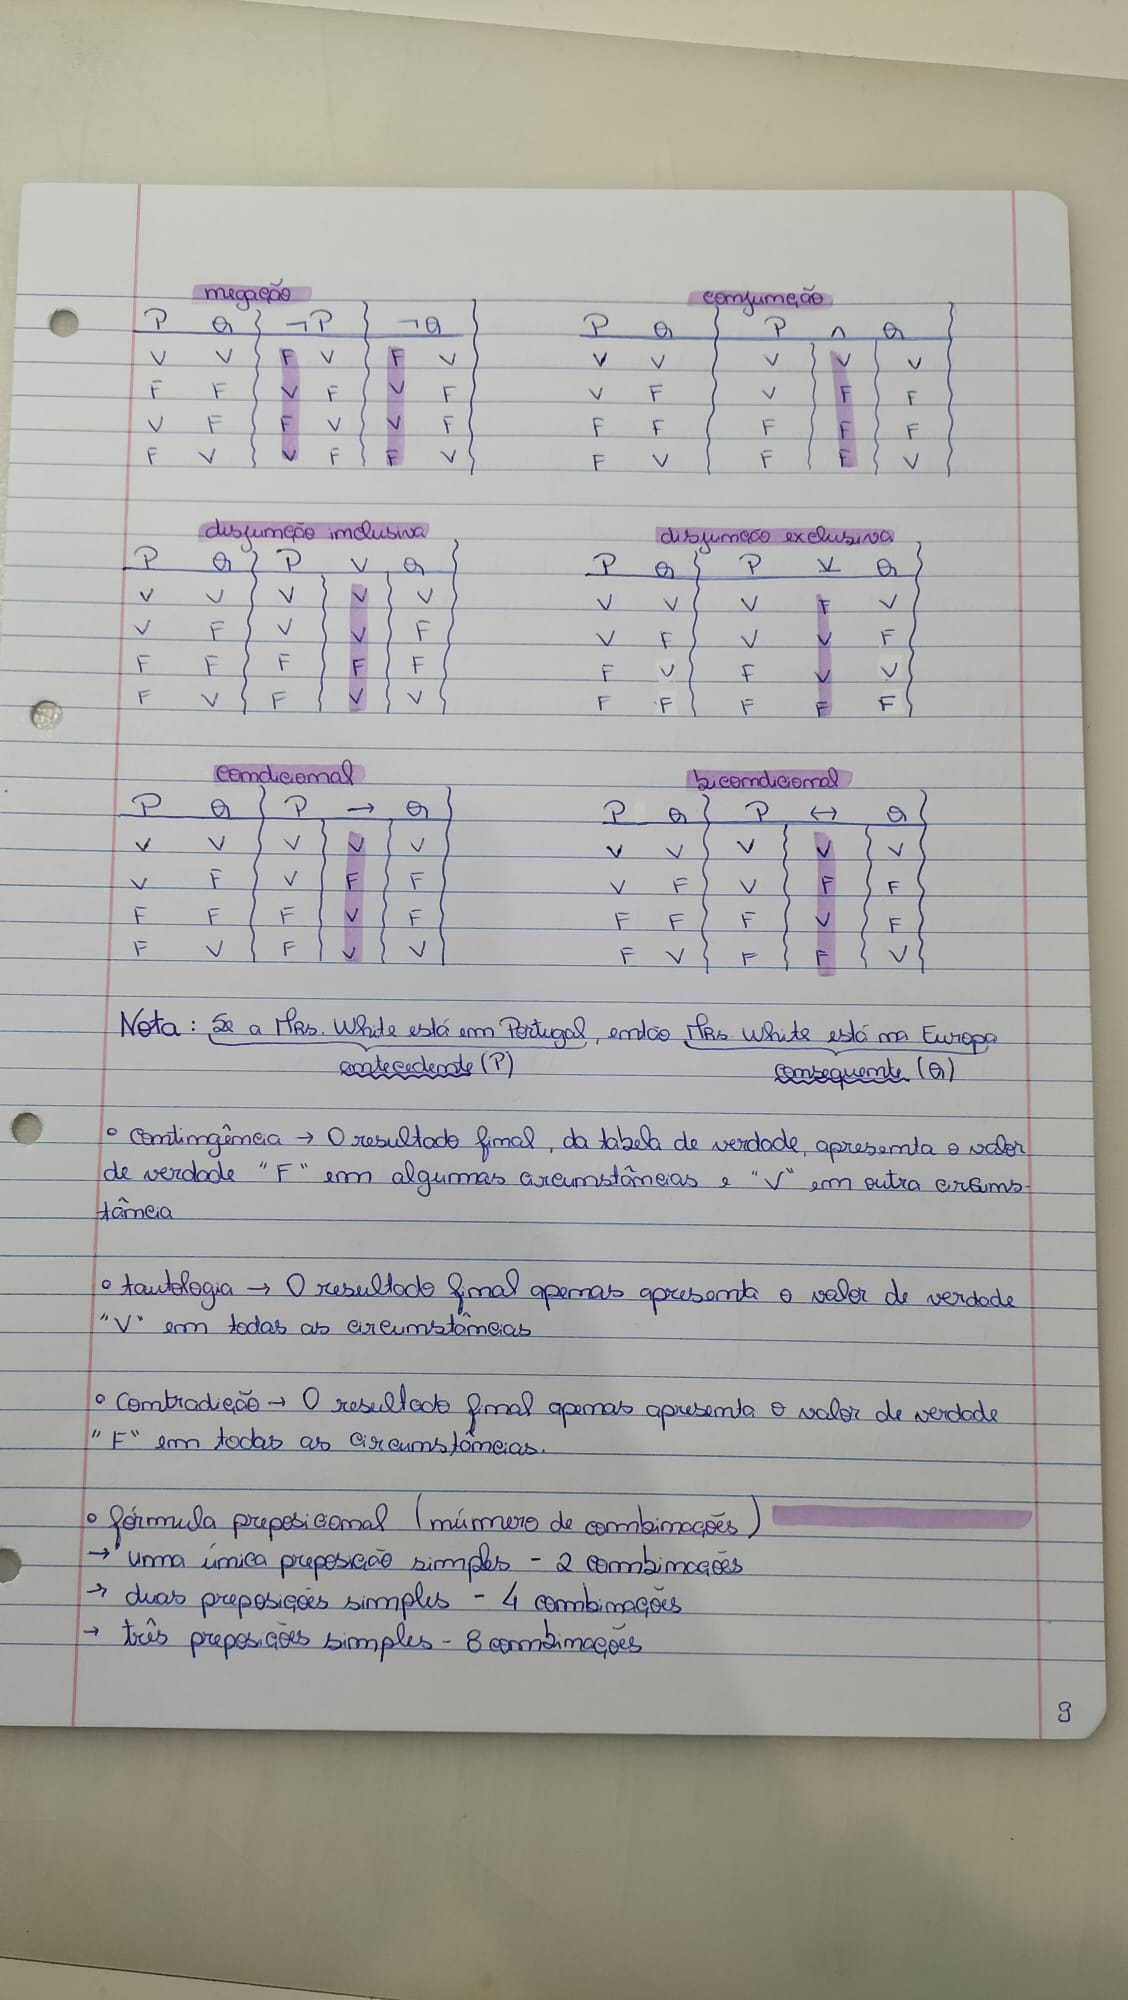 negação
P Q ¬P ¬Q
V V F V F V
F F V F V F
V F F V V F
F V V F F V
conjunção
P Q P ∧ Q
V V V V V
V F V F F
F F F F F
F V F F V
disjunção inclusiva
P Q P V Q
V V V V V
V F V V F
F F F F F
F V F V V
disjunção exclusiva
P Q P ⊻ Q
V V V F V
V F V V F
F V F V V
F F F F F
condicional
P Q P → Q
V V V V V
V F V F F
F F F V F
F V F V V
bicondicional
P Q P ↔ Q
V V V V V
V F V F F
F F F V F
F V F F V
Nota: Se a Mrs. White está em Portugal, então Mrs. White está na Europa
antecedente (P) consequente (Q)
° contingência → O resultado final, da tabela de verdade, apresenta o valor
de verdade "F" em algumas circunstâncias e "V" em outra circuns-
tância
° tautologia → O resultado final apenas apresenta o valor de verdade
"V" em todas as circunstâncias
° Contradição → O resultado final apenas apresenta o valor de verdade
"F" em todas as circunstâncias.
° fórmula preposicional (número de combinações)
→ uma única preposição simples - 2 combinações
→ duas preposições simples - 4 combinações
→ três preposições simples - 8 combinações
9